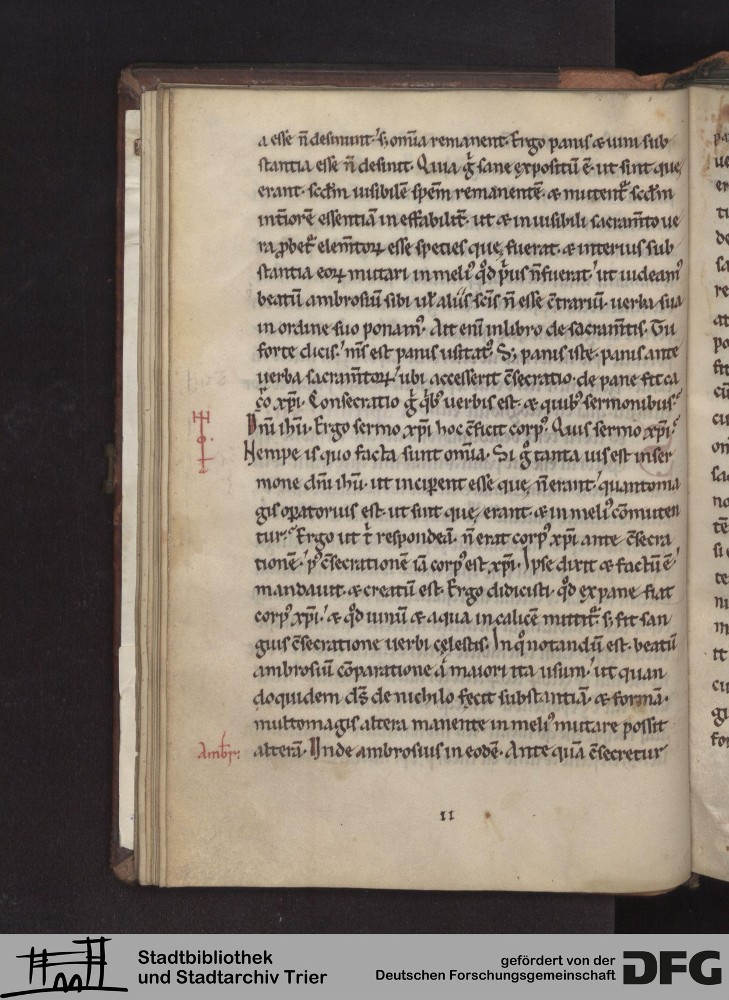 a esse n̄ desinunt. s; om̄ia remanent. Ergo panis & uini sub
stantia esse n̄ desinit. Quia g̊ sane expositū ē. ut sint que
erant. scd̄m uisibilē spēm remanentē. & mutent᷒ scd̄m
int̄iorē essentiā ineffabilit̄. ut & inuisibili sacram̄to ue
ra ꝓbet᷒ elem̄toꝝ esse species que fuerat. & interius sub
stantia eoꝝ mutari in meli᷒ qd̄ p̄us n̄ fuerat. ut uideam᷒
beatū ambrosiū sibi ul̄ aliis scīs n̄ esse c̄trariū. uerba sua
in ordine suo ponam᷒. Ait enī in libro de sacram̄tis. Tu
forte dicis. m̄s est panis usitat᷒. S; panis iste. panis ante
uerba sacram̄toꝝ. ubi accesserit c̄secratio. de pane fit ca
ro xp̄i. Consecratio g̊ qb᷒ uerbis est. & quib᷒ sermonibus.
Dn̄i ih̄u. Ergo sermo xp̄i hoc c̄ficit corp᷒. Quis sermo xp̄i.
Nempe is quo facta sunt om̄ia. Si g̊ tanta uis est in ser
mone dn̄i ih̄u. ut inciꝑent esse que n̄ erant. quantoma
gis oꝑatorius est. ut sint que erant. & in meli᷒ cōmuten
tur. Ergo ut t̄ respondeā. n̄ erat corp᷒ xp̄i ante c̄secra
tionē. p᷒ c̄secrationē iā corp᷒ est xp̄i. Ipse dixit & factū ē.
mandauit. & creatū est. Ergo didicisti. qd̄ ex pane fiat
corp᷒ xp̄i. & qd̄ uinū & aqua in calicē mittit᷒. s; fit san
guis c̄secratione uerbi celestis. In qo notandū est. beatū
ambrosiū cōparatione a maiori ita usum. ut quan
doquidem ds̄ de nichilo fecit substantiā. & formā.
multomagis altera manente in meli᷒ mutare possit
Ambr̄. alterā. Unde ambrosius in eodē. Ante quā c̄secretur
11
Stadtbibliothek
und Stadtarchiv Trier
gefördert von der
Deutschen Forschungsgemeinschaft
DFG